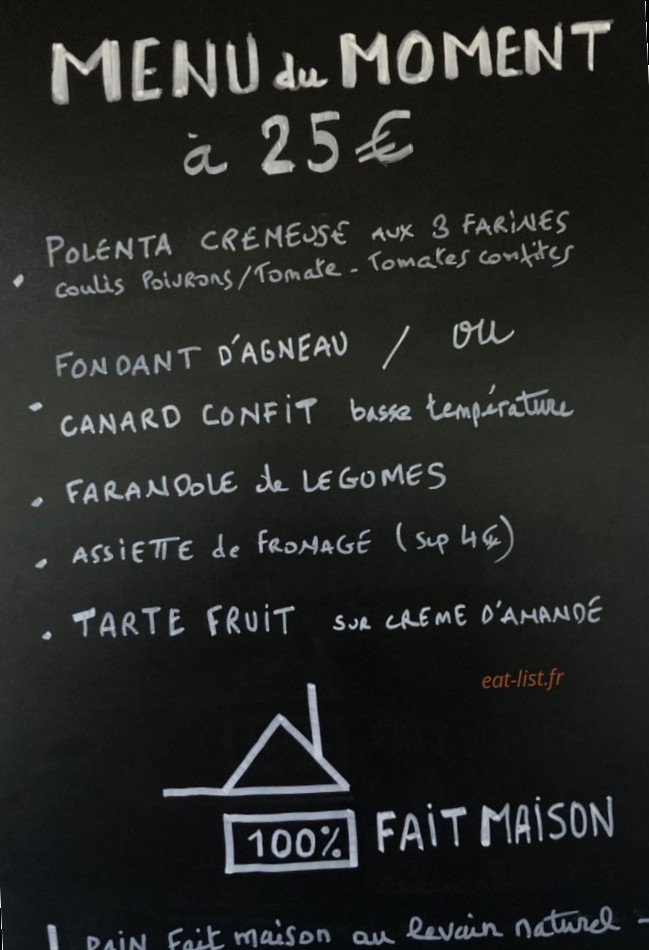 MENU du MOMENT
à 25€
POLENTA CREMEUSE AUX 3 FARINES
coulis Poivrons/Tomate - Tomates confites
FONDANT D'AGNEAU / ou
CANARD CONFIT basse température
FARANDOLE de LEGOMES
ASSIETTE de FROMAGE (sup 4€)
TARTE FRUIT SUR CREME D'AMANDE
eat-list.fr
100% FAIT MAISON
PAIN Fait maison au levain naturel -